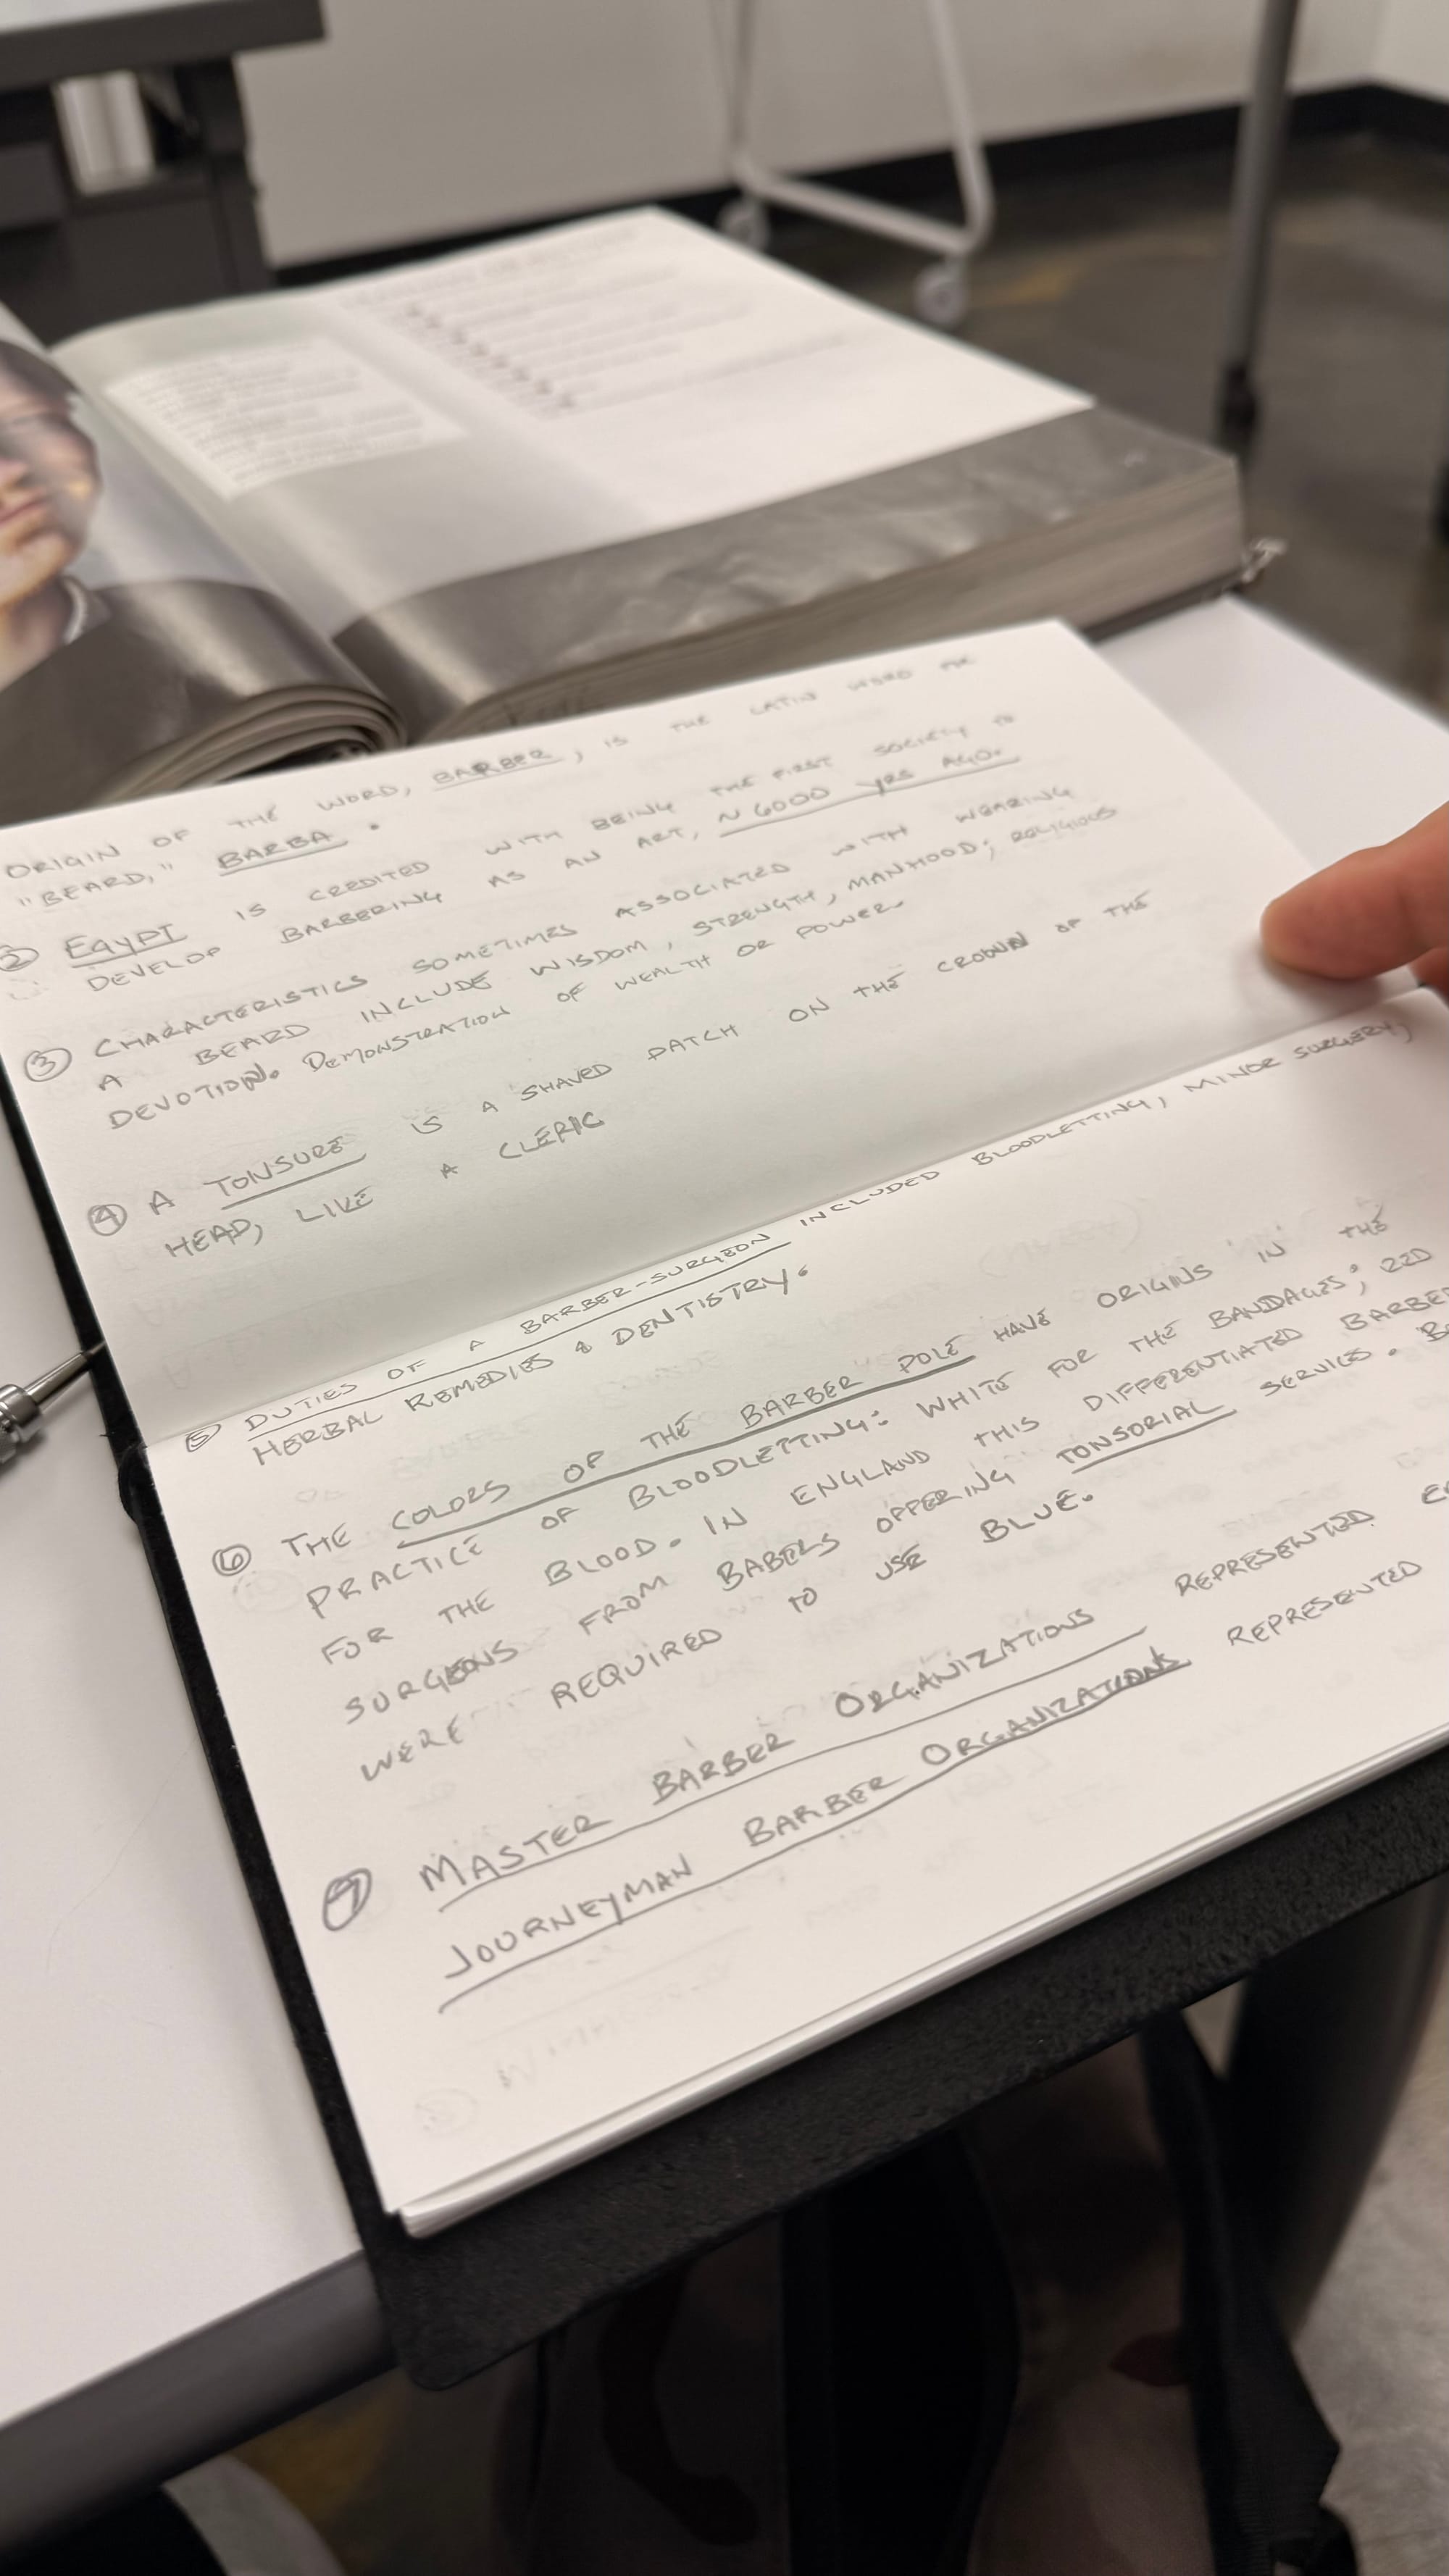 ORIGIN OF THE WORD, BARBER, IS THE LATIN WORD FOR
"BEARD," BARBA.
② EGYPT IS CREDITED WITH BEING THE FIRST SOCIETY TO
DEVELOP BARBERING AS AN ART, ~6000 YRS AGO.
③ CHARACTERISTICS SOMETIMES ASSOCIATED WITH WEARING
A BEARD INCLUDE WISDOM, STRENGTH, MANHOOD; RELIGIOUS
DEVOTION. DEMONSTRATION OF WEALTH OR POWER.
④ A TONSURE IS A SHAVED PATCH ON THE CROWN OF THE
HEAD, LIKE A CLERIC
⑤ DUTIES OF A BARBER-SURGEON INCLUDED BLOODLETTING, MINOR SURGERY,
HERBAL REMEDIES & DENTISTRY.
⑥ THE COLORS OF THE BARBER POLE HAVE ORIGINS IN THE
PRACTICE OF BLOODLETTING: WHITE FOR THE BANDAGES; RED
FOR THE BLOOD. IN ENGLAND THIS DIFFERENTIATED BARBER
SURGEONS FROM BABERS OFFERING TONSORIAL SERVICES.
WERE REQUIRED TO USE BLUE.
⑦ MASTER BARBER ORGANIZATIONS REPRESENTED
JOURNEYMAN BARBER ORGANIZATIONS REPRESENTED